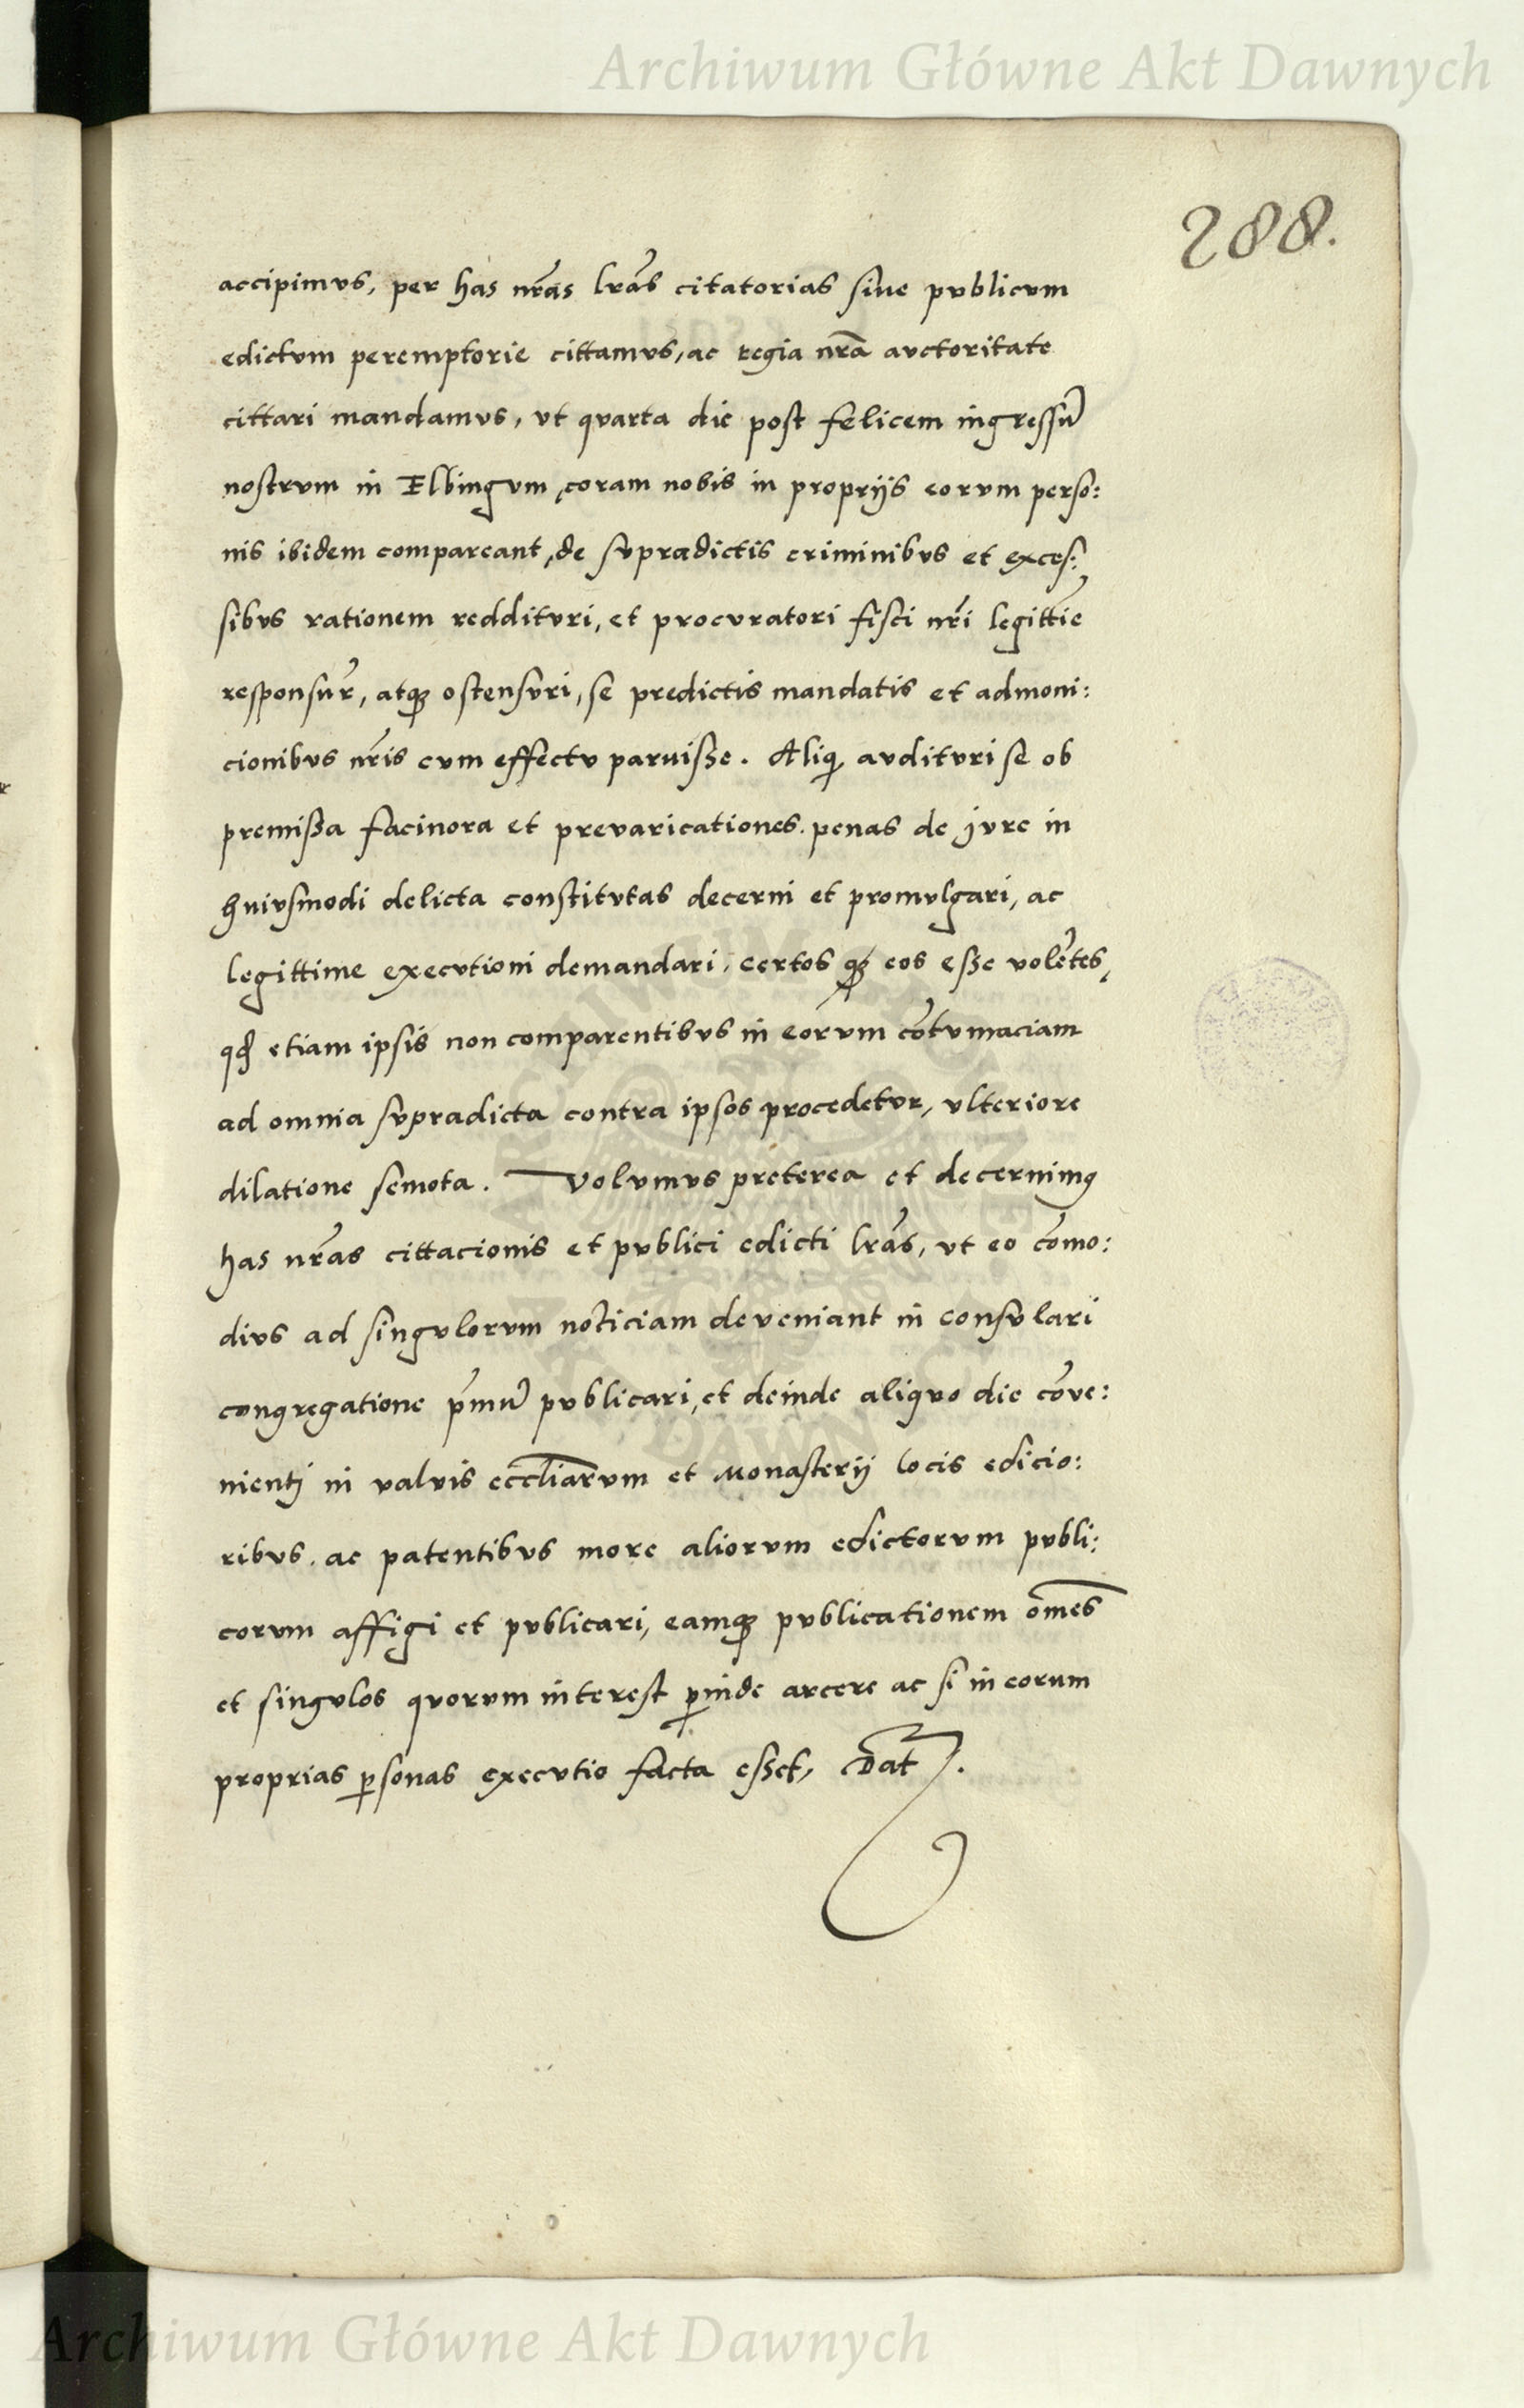 Archiwum Główne Akt Dawnych
288.
accipimus, per has nr̃as lrãs citatorias siue publicum
edictum peremptorie cittamus, ac regia nrã auctoritate
cittari mandamus, ut quarta die post felicem ingressũ
nostrum in Elbingum, coram nobis in proprijs eorum perso:
nis ibidem compareant, de supradictis criminibus et exces:
sibus rationem reddituri, et procuratori fisci nr̃i legittĩe
responsur̃, atqꝫ ostensuri, se predictis mandatis et admoni:
cionibus nr̃is cum effectu paruisse. Alioqꝫ audituri se ob
premissa facinora et preuaricationes. penas de jure in
huiusmodi delicta constitutas decerni et promulgari, ac
legittime executioni demandari, certos qꝫ eos esse uolẽtes,
qđ etiam ipsis non comparentibus in eorum cõtumaciam
ad omnia supradicta contra ipsos procedetur, ulteriore
dilatione semota. Volumus preterea et decernimꝰ
has nr̃as cittacionis et publici edicti lrãs, ut eo cõmo:
dius ad singulorum noticiam deueniant in consulari
congregatione p̃mũ publicari, et deinde aliquo die cõue:
nientj in valuis eccl̃iarum et Monasterij locis edicio:
ribus. ac patentibus more aliorum edictorum publi:
corum affigi et publicari, eamqꝫ publicationem om̃es
et singulos quorum interest ꝑinde arcere ac si in eorum
proprias ꝑsonas executio facta esset, Dat̃.
Archiwum Główne Akt Dawnych